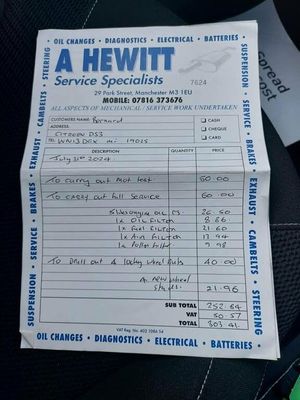 OIL CHANGES • DIAGNOSTICS • ELECTRICAL • BATTERIES
SUSPENSION • SERVICE • BRAKES • EXHAUST • CAMBELTS • STEERING
SUSPENSION • SERVICE • BRAKES • EXHAUST • CAMBELTS • STEERING
A HEWITT
Service Specialists
7624
29 Park Street, Manchester M3 1EU
MOBILE: 07816 373676
ALL ASPECTS OF MECHANICAL / SERVICE WORK UNDERTAKEN
CUSTOMERS NAME Bernard
CASH
ADDRESS
CHEQUE
Citroen DS3
CARD
TEL
DESCRIPTION QUANTITY PRICE
July 2024
To carry out Mot test 50.00
To carry out full service 60.00
26.50
1x oil Filter 8.66
1x Fuel Filter 21.60
1x Air Filter 13.94
1x Pollen Filter 9.98
To Drill out 4 locking wheel Nuts 40.00
21.96
SUB TOTAL 252.64
VAT 50.57
TOTAL 303.41
VAT Reg. No. 602 1086 54
OIL CHANGES • DIAGNOSTICS • ELECTRICAL • BATTERIES
Spread
cost